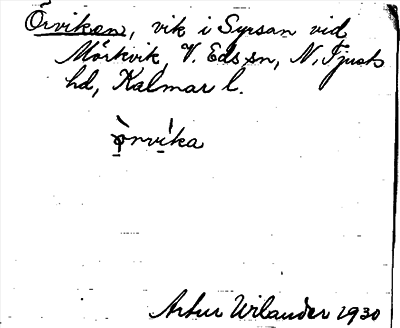 Örviken, vik i Syrsan vid
Mörkvik, V. Eds sn, N. Tjusts
hd, Kalmar l.
Artur Wilander 1930